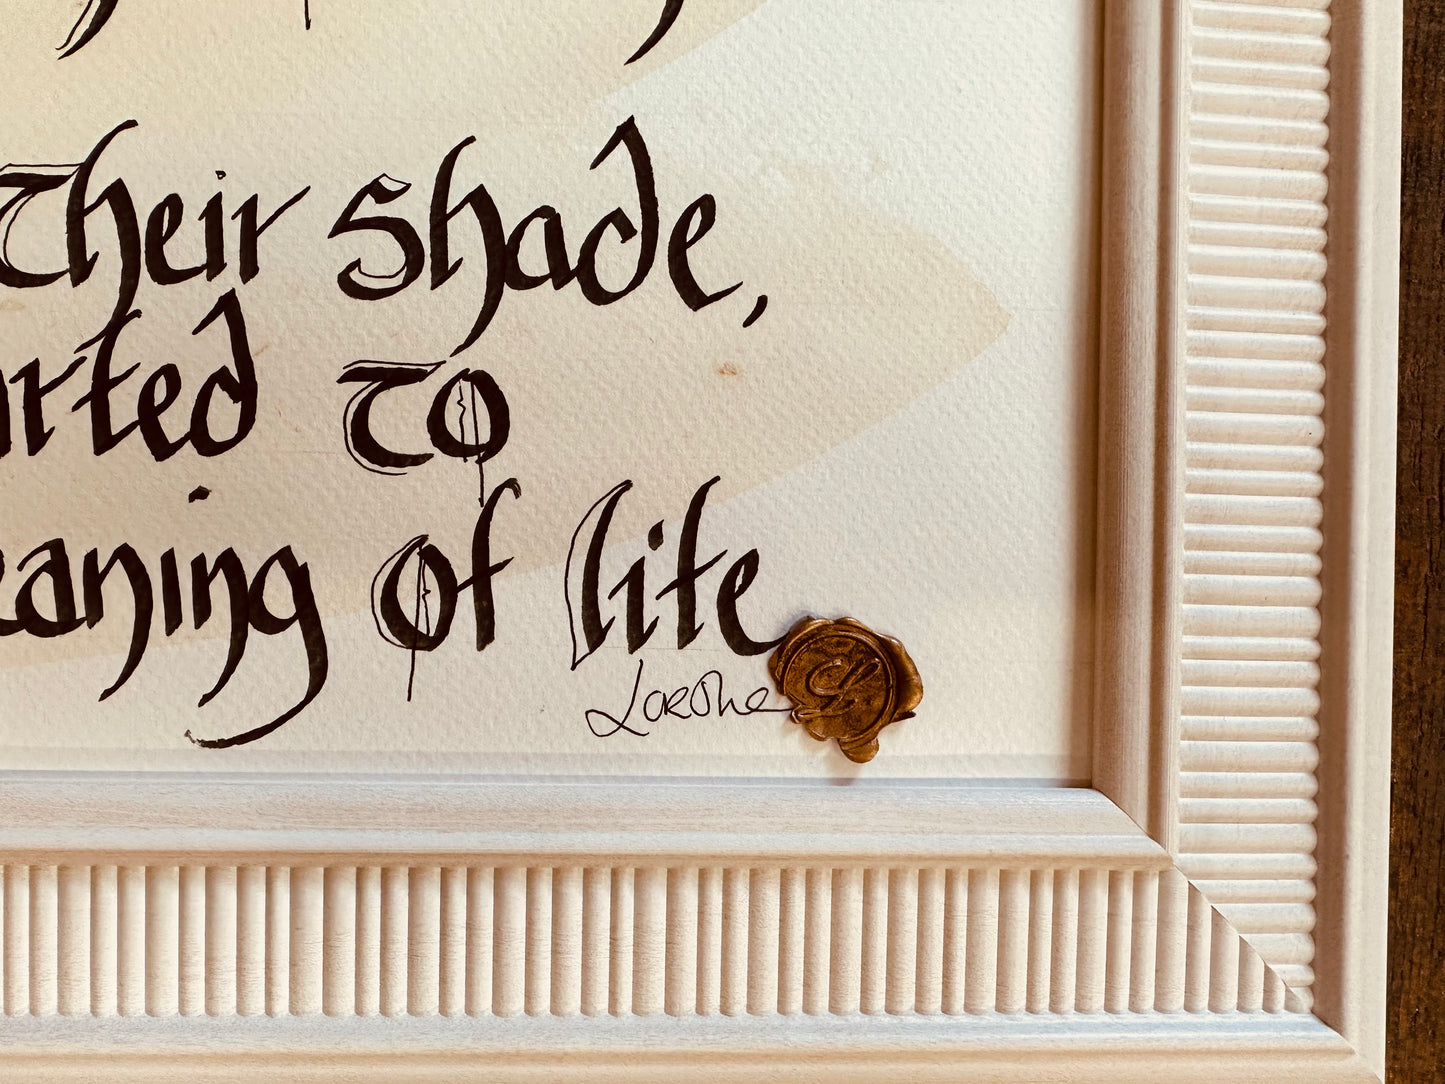 Their shade,
arted to
eaning of life
Lorône